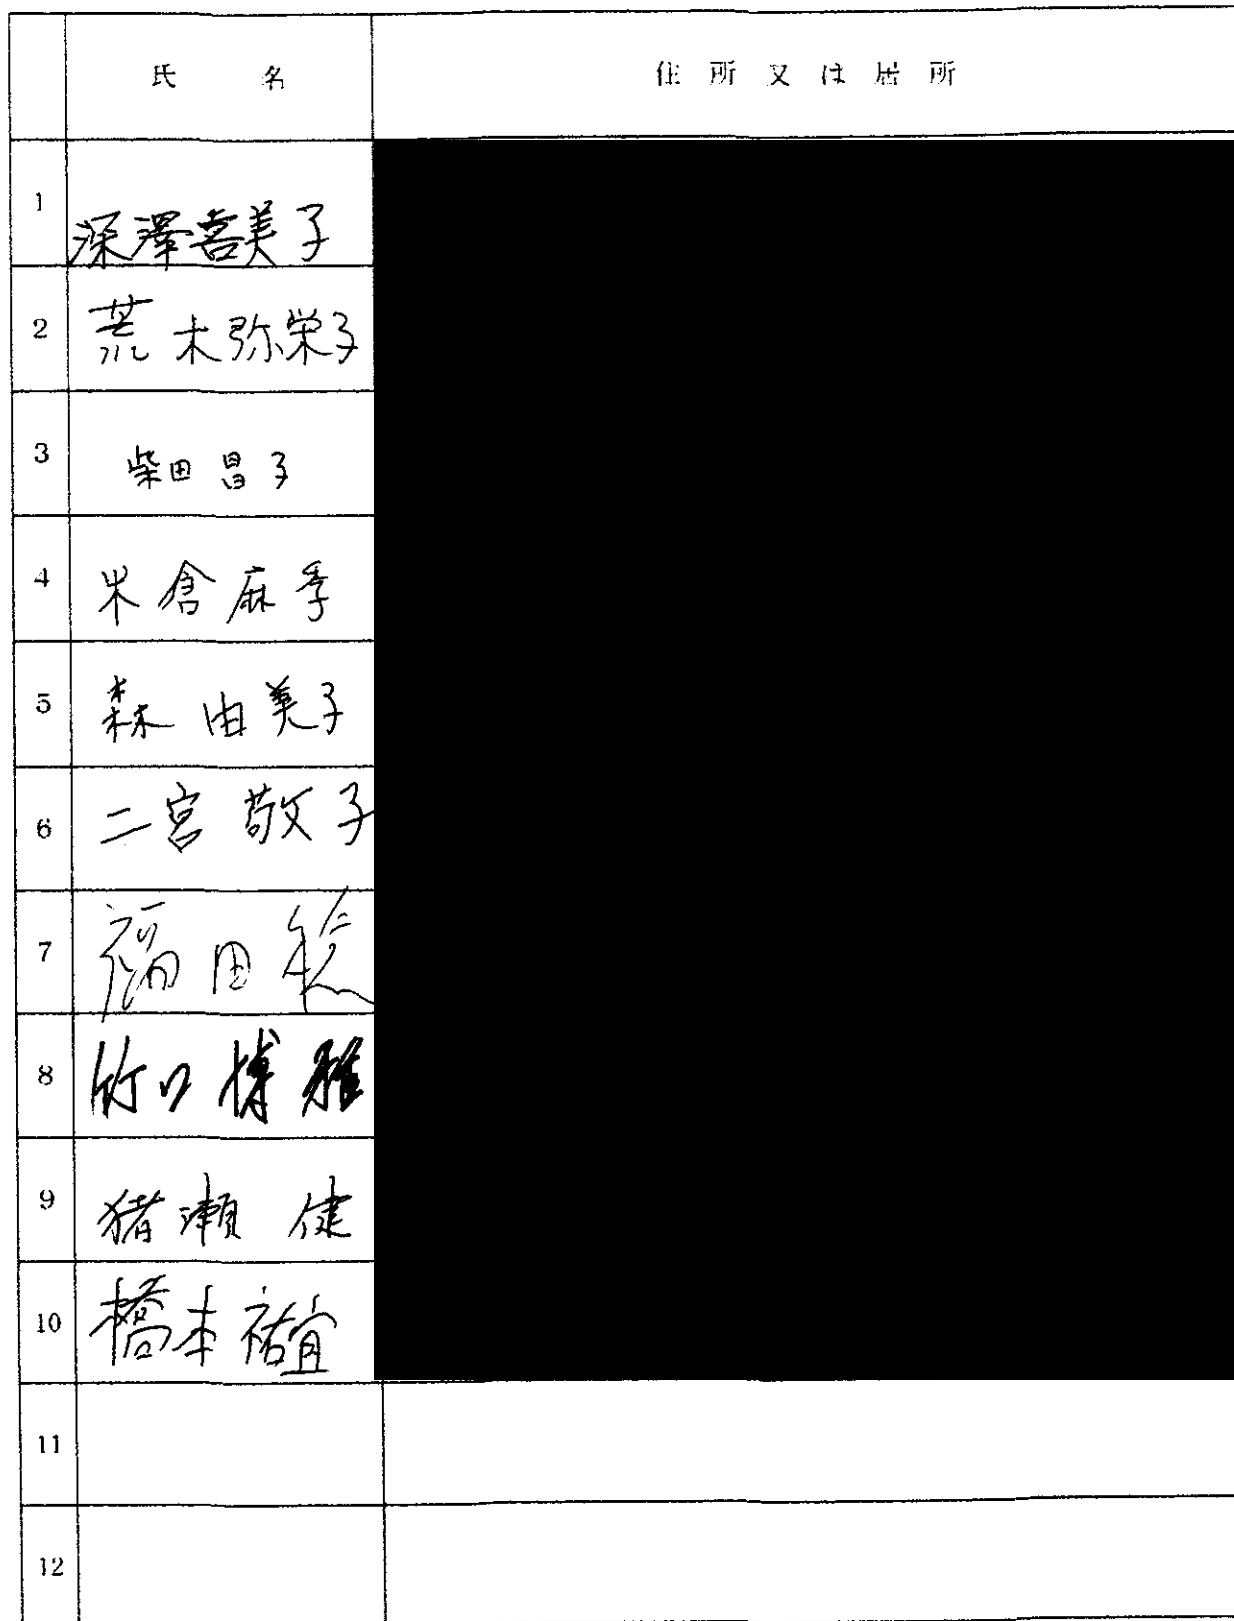 氏 名 住所又は居所
1 深澤喜美子
2 荒木弥栄子
3 柴田昌子
4 倉麻季
5 森由美子
6 二宮敬子
7 福田稔
8 竹口博雅
9 猪瀬健
10 橋本祐宜
11
12